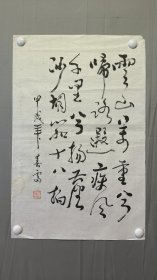 雲山萬重兮
歸路遐疾風
千里兮揚塵
沙胡笳十八拍
甲戌年春